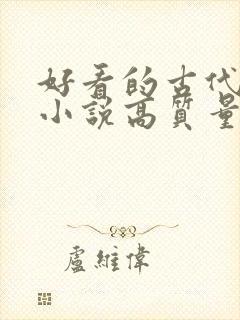 好看的古代
小說高質量
盧維偉